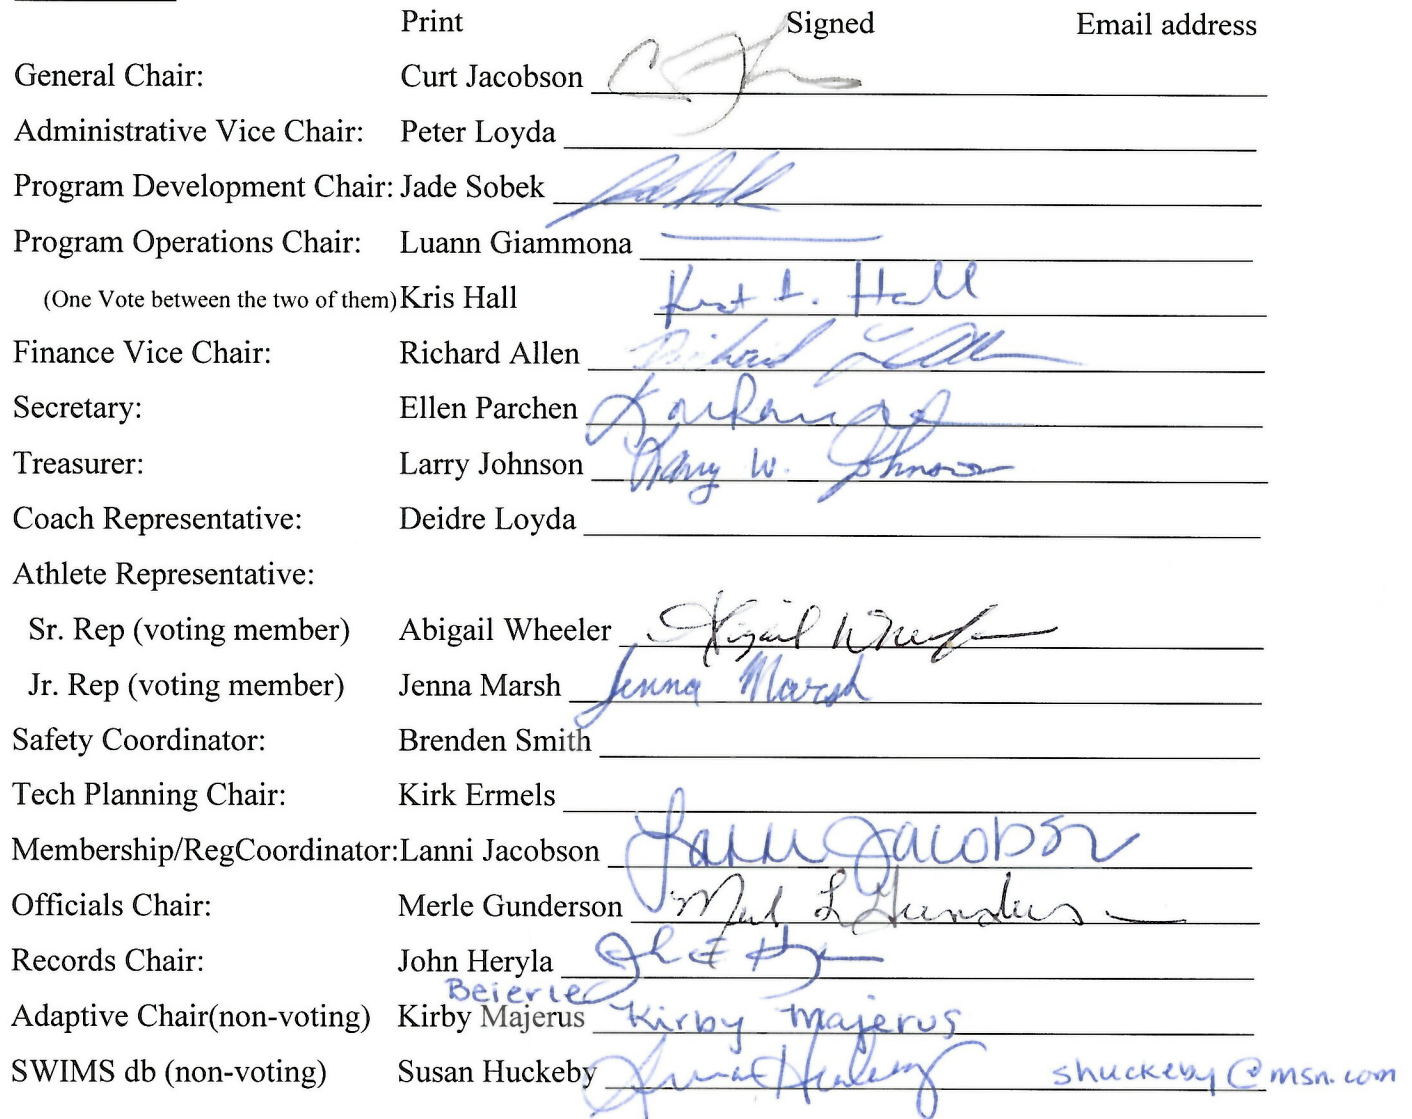 Print Signed Email address
General Chair: Curt Jacobson
Administrative Vice Chair: Peter Loyda
Program Development Chair: Jade Sobek
Program Operations Chair: Luann Giammona
(One Vote between the two of them) Kris Hall Hall
Finance Vice Chair: Richard Allen Richard
Secretary: Ellen Parchen
Treasurer: Larry Johnson Larry W. Johnson
Coach Representative: Deidre Loyda
Athlete Representative:
Sr. Rep (voting member) Abigail Wheeler Abigail Wheeler
Jr. Rep (voting member) Jenna Marsh Jenna Marsh
Safety Coordinator: Brenden Smith
Tech Planning Chair: Kirk Ermels
Membership/RegCoordinator: Lanni Jacobson Lanni Jacobson
Officials Chair: Merle Gunderson Merl L Gunderson
Records Chair: John Heryla
Beierle
Adaptive Chair(non-voting) Kirby Majerus Kirby Majerus
SWIMS db (non-voting) Susan Huckeby Susan Huckeby shuckeby@msn.com